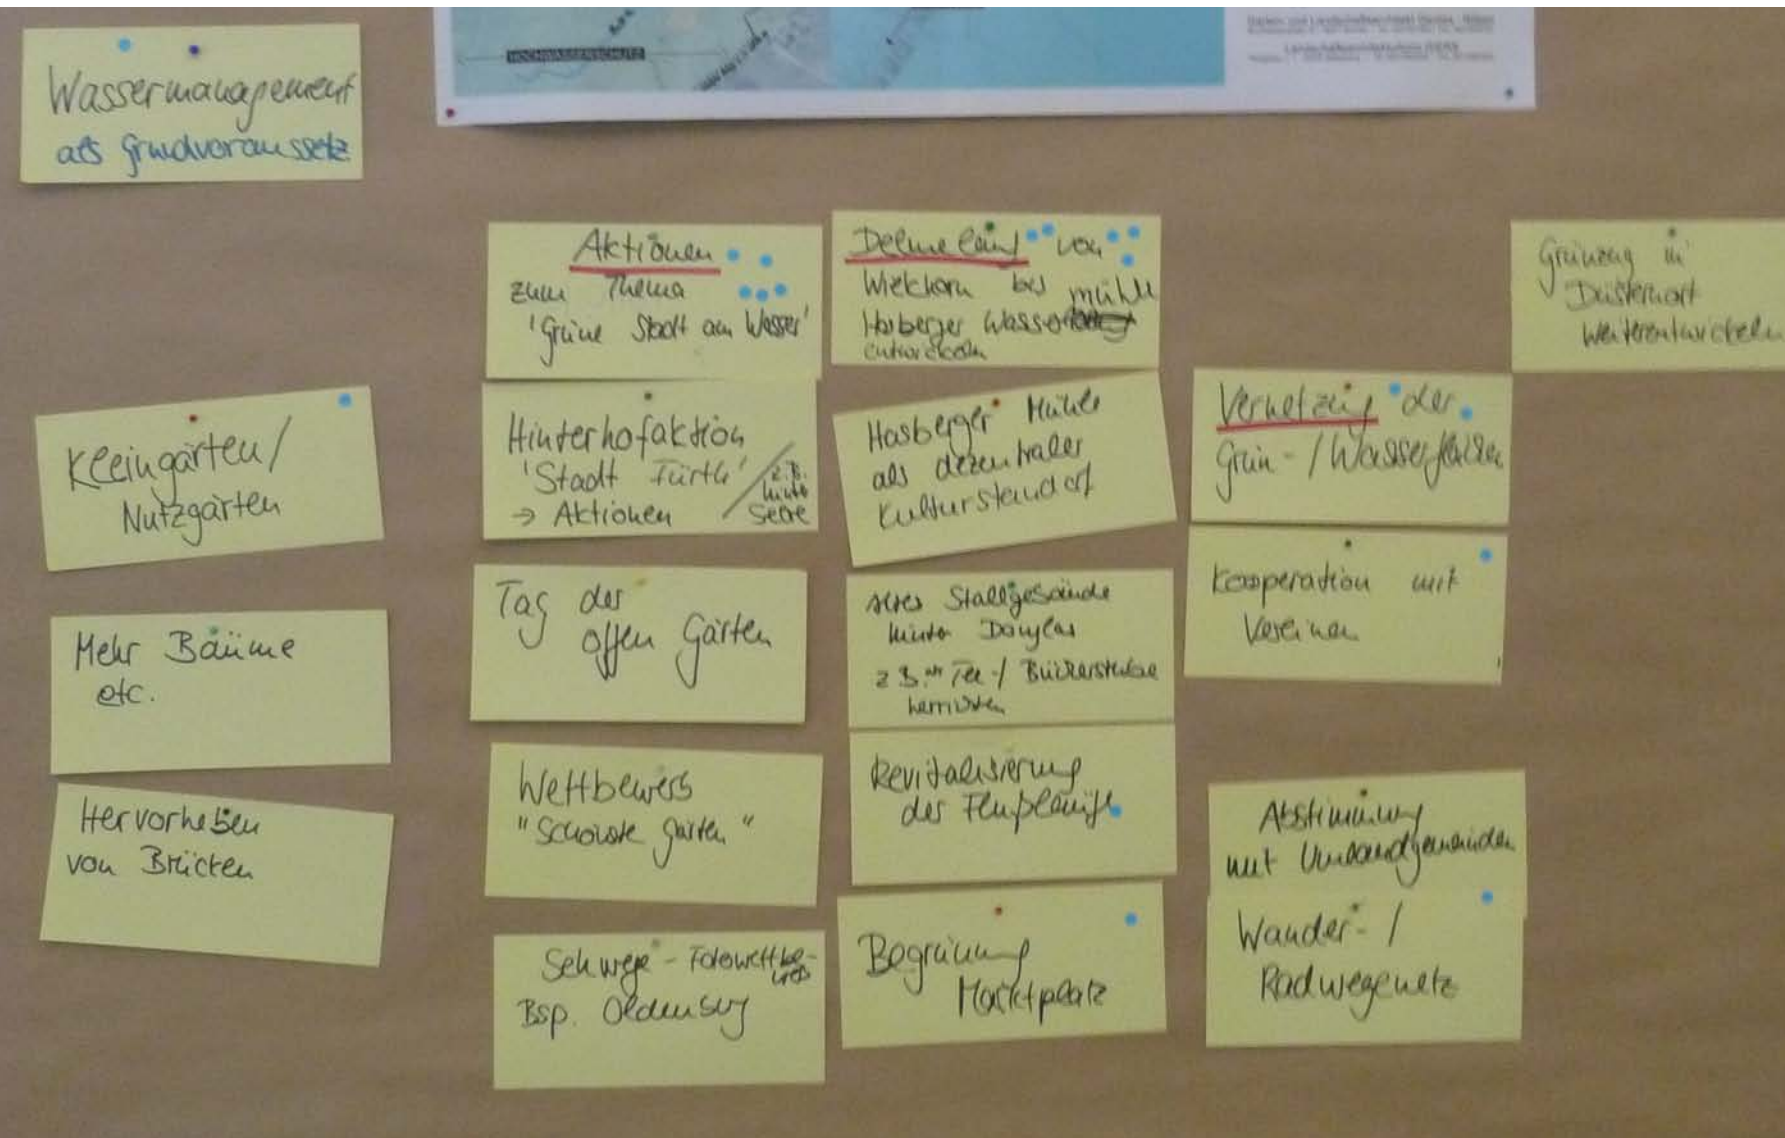 HOCHWASSERSCHUTZ
Wassermanagement
als Grundvoraussetz
Kleingärten /
Nutzgärten
Mehr Bäume
etc.
Hervorheben
von Brücken
Aktionen
zum Thema
'Grüne Stadt am Wasser'
Hinterhofaktion
'Stadt Fürth'
→ Aktionen
z.B.
hinter
Tag der
offen Gärten
Wettbewerb
"Schönste Gärten"
Sehwege - Fotowettbe-
werb
Bsp. Oldenburg
Delmelauf von
Wiekhorn bis
Hasberger Wassermühle
entwickeln
Hasberger Mühle
als dezentraler
Kulturstandort
altes Stallgebäude
hinter Douglas
z.B. Tee- / Bücherstube
herrichten
Revitalisierung
des Flußlaufs
Begrünung
Marktplatz
Vernetzung der
Grün- / Wasserflächen
Kooperation mit
Vereinen
Abstimmung
mit Umlandgemeinden
Wander- /
Radwegenetz
Grünzug in
Düsternort
weiterentwickeln